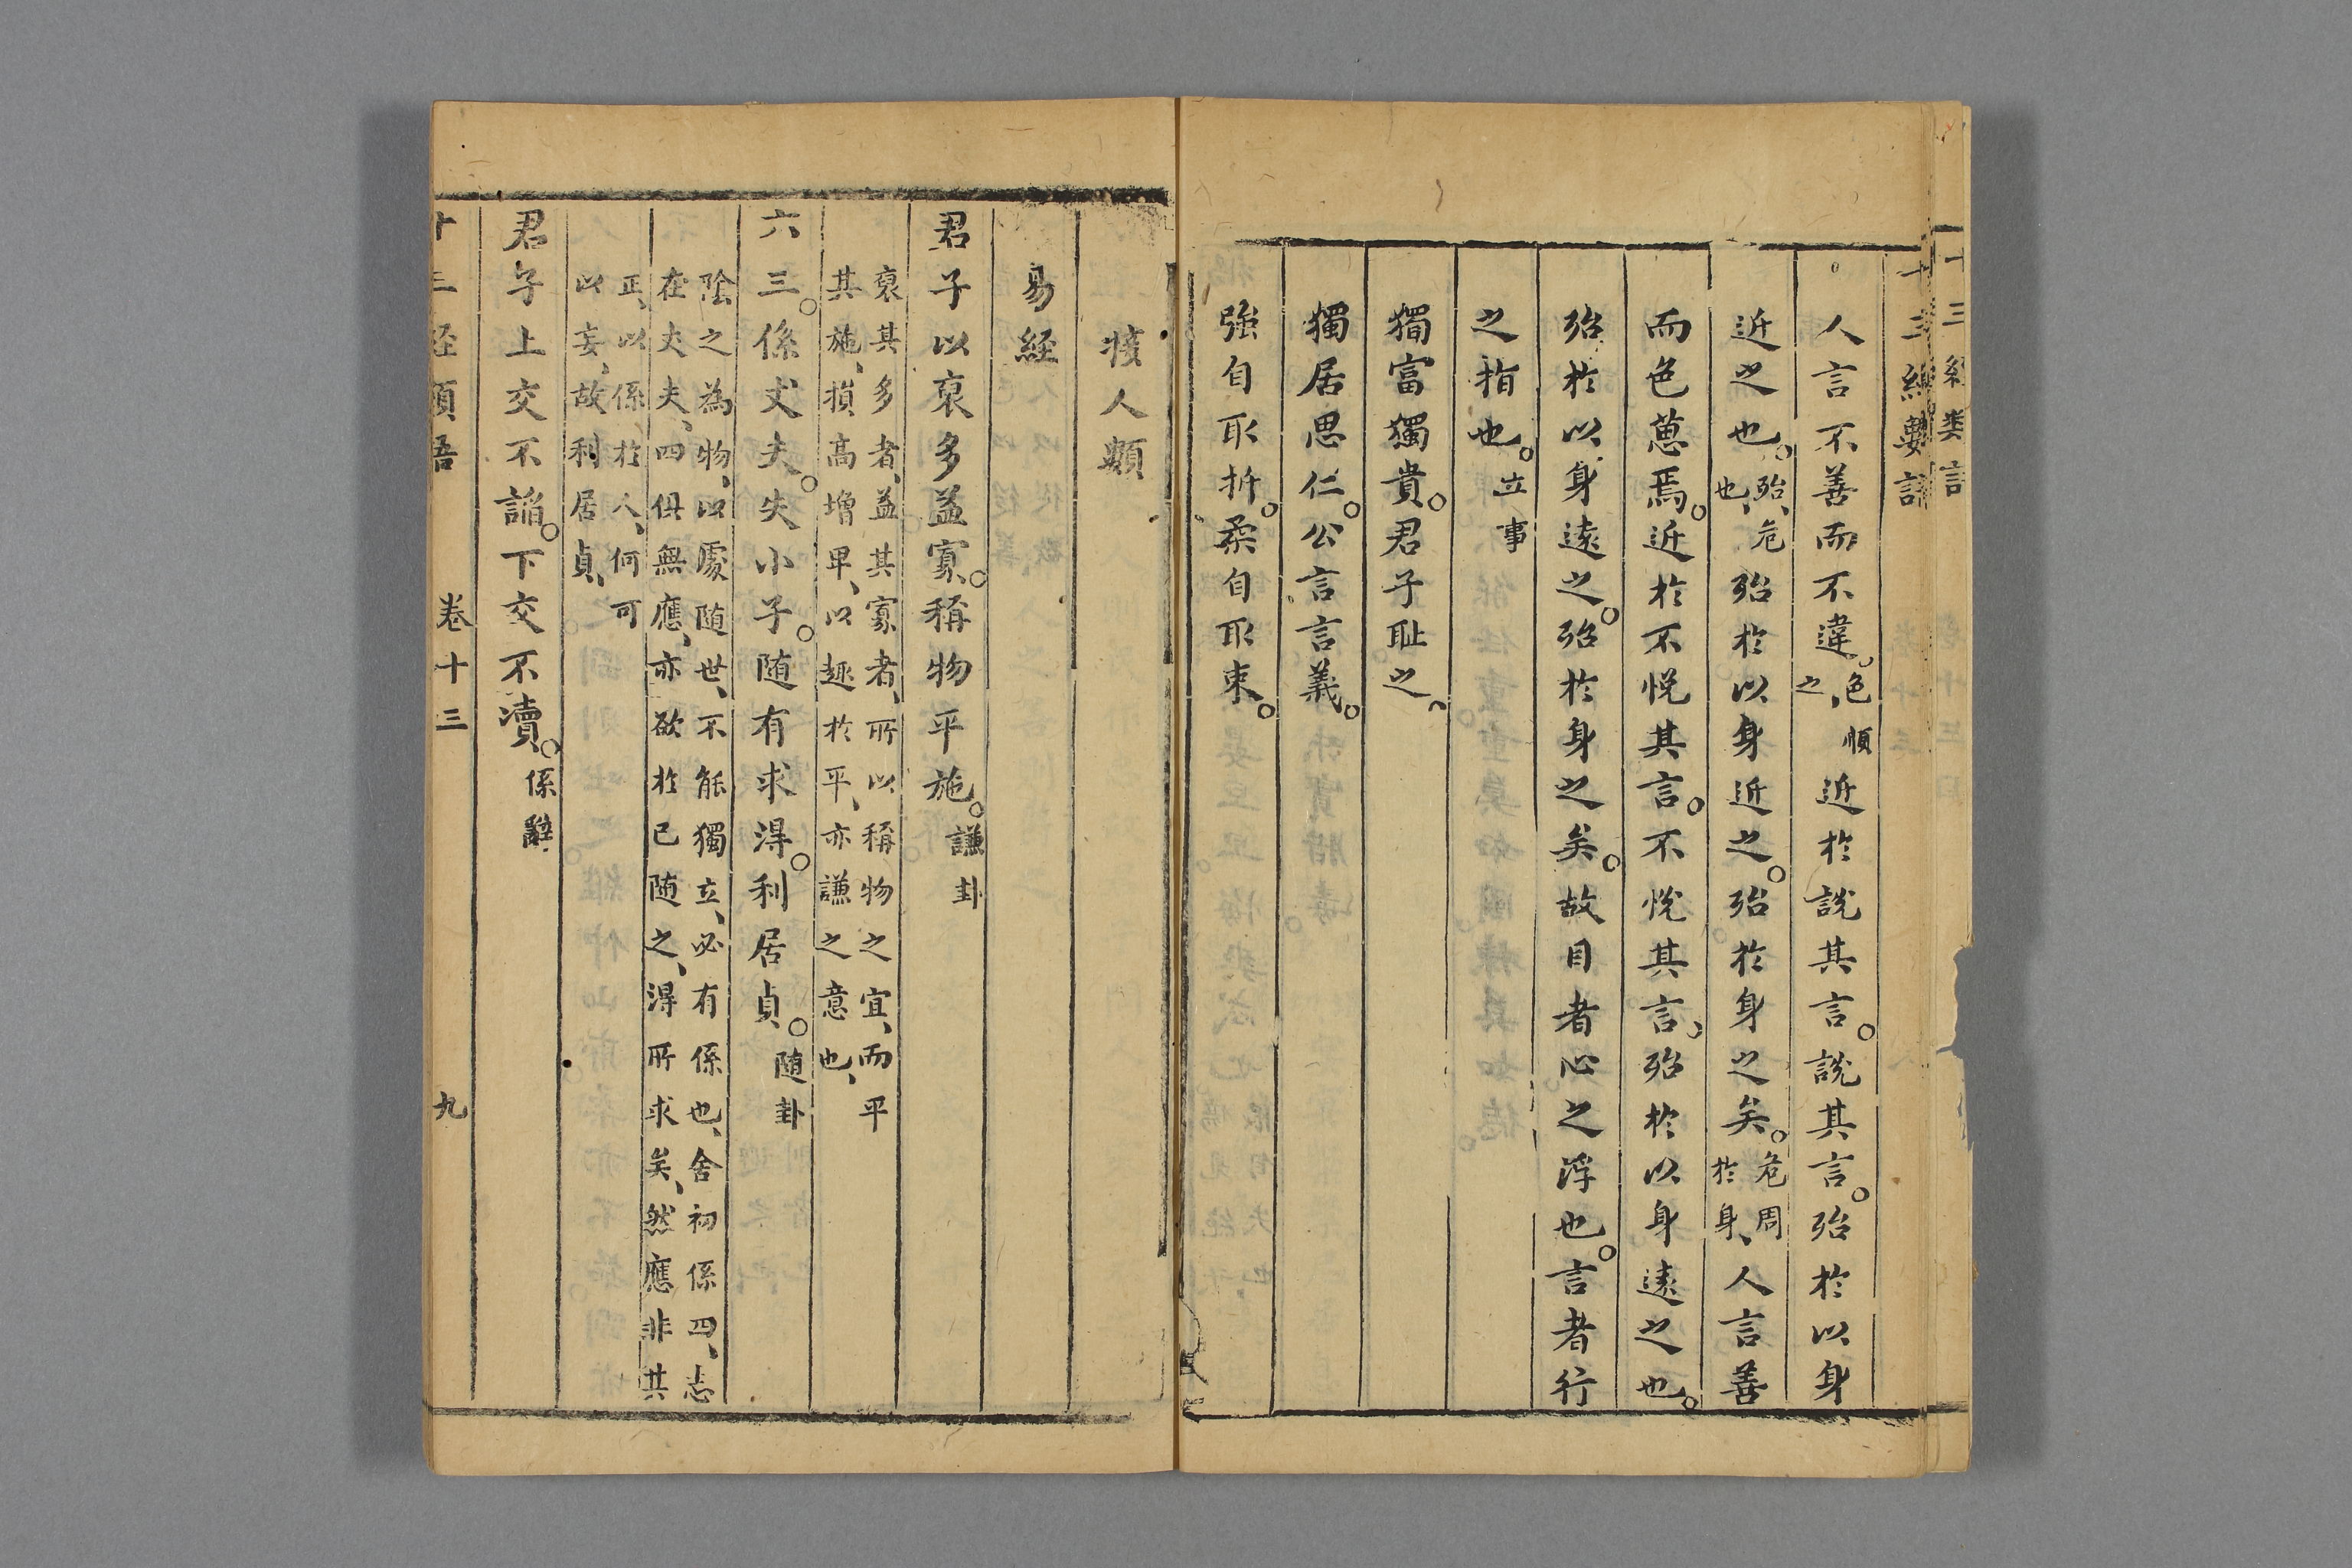 人言不善而不違。色順之、近於說其言。說其言。殆於以身
近之也。殆、危也、殆於以身近之。殆於身之矣。危周於身、人言善
而色葸焉。近於不悅其言。不悅其言、殆於以身遠之也。
殆於以身遠之。殆於身之矣。故目者心之浮也。言者行
之指也。立事
獨富獨貴。君子耻之、
獨居思仁。公言言義。
強自取折。柔自取束。
接人類
易經
君子以裒多益寡。稱物平施。謙卦
裒其多者、益其寡者、所以稱物之宜、而平
其施、損高增卑、以趣於平、亦謙之意也、
六三。係丈夫。失小子。随有求淂。利居貞。随卦
陰之為物、以處随世、不能獨立、必有係也、舍初係四、志
在丈夫、四俱無應、亦欲於己随之、淂所求矣、然應非其
正、以係於人、何可
以妄、故利居貞、
君子上交不諂。下交不瀆。係辭
十三経類語 卷十三 九